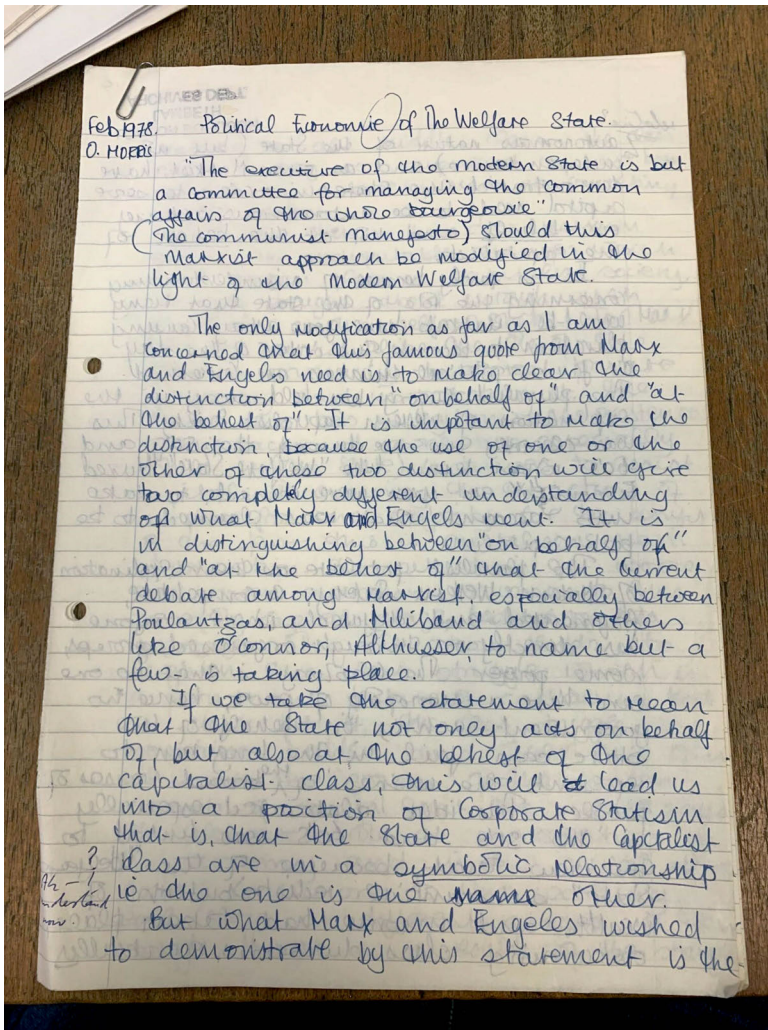 Feb 1978. Political Economie of The Welfare State.
O. MORRIS
"The executive of the modern State is but
a committee for managing the common
affairs of the whole bourgeoisie"
(The communist Manefesto) Should this
Marxist approach be modified in the
light of the Modern Welfare State.
The only modification as far as I am
concerned that this famous quote from Marx
and Engels need is to make clear the
distinction between "on behalf of" and "at
the behest of". It is important to make the
distinction, because the use of one or the
other of these two distinction will give
two completly different understanding
of what Marx and Engels ment. It is
in distinguishing between "on behalf of"
and "at the behest of" that the current
debate among Marxist, especially between
Poulantzas, and Miliband and others
like O'Connor, Althusser, to name but a
few - is taking place.
If we take the statement to mean
that the State not only acts on behalf
of, but also at, the behest of the
capitalist class, this will lead us
into a position of Corporate Statism
that is, that the State and the Capitalist
? Class are in a symbolic relationship
Ah - I
understand
now.
ie the one is the same other.
But what Marx and Engeles wished
to demonstrate by this statement is the